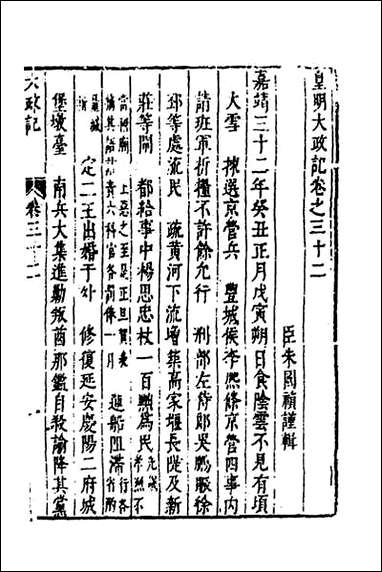 皇明大政記卷之三十二
臣朱國禎謹輯
嘉靖三十二年癸丑正月戊寅朔日食陰雲不見有頃
大雪　揀選京營兵　豐城侯李熙條京營四事內
請班軍折糧不許餘允行　刑部左侍郎吳鵬賑徐
邳等處流民　疏黃河下流增築高家堰長陡及新
莊等閘　都給事中楊思忠杖一百黜為民先議
孝烈不
當祔廟　上惡之至是正旦賀表
摘其語詰責六科官各罰俸一月　運船阻滯行各
省酌
量減　定二王出婚于外　修復延安慶陽二府城
堡墩臺　南兵大集進勦叛酋那鑑自殺諭降其黨
大政記　卷三十二